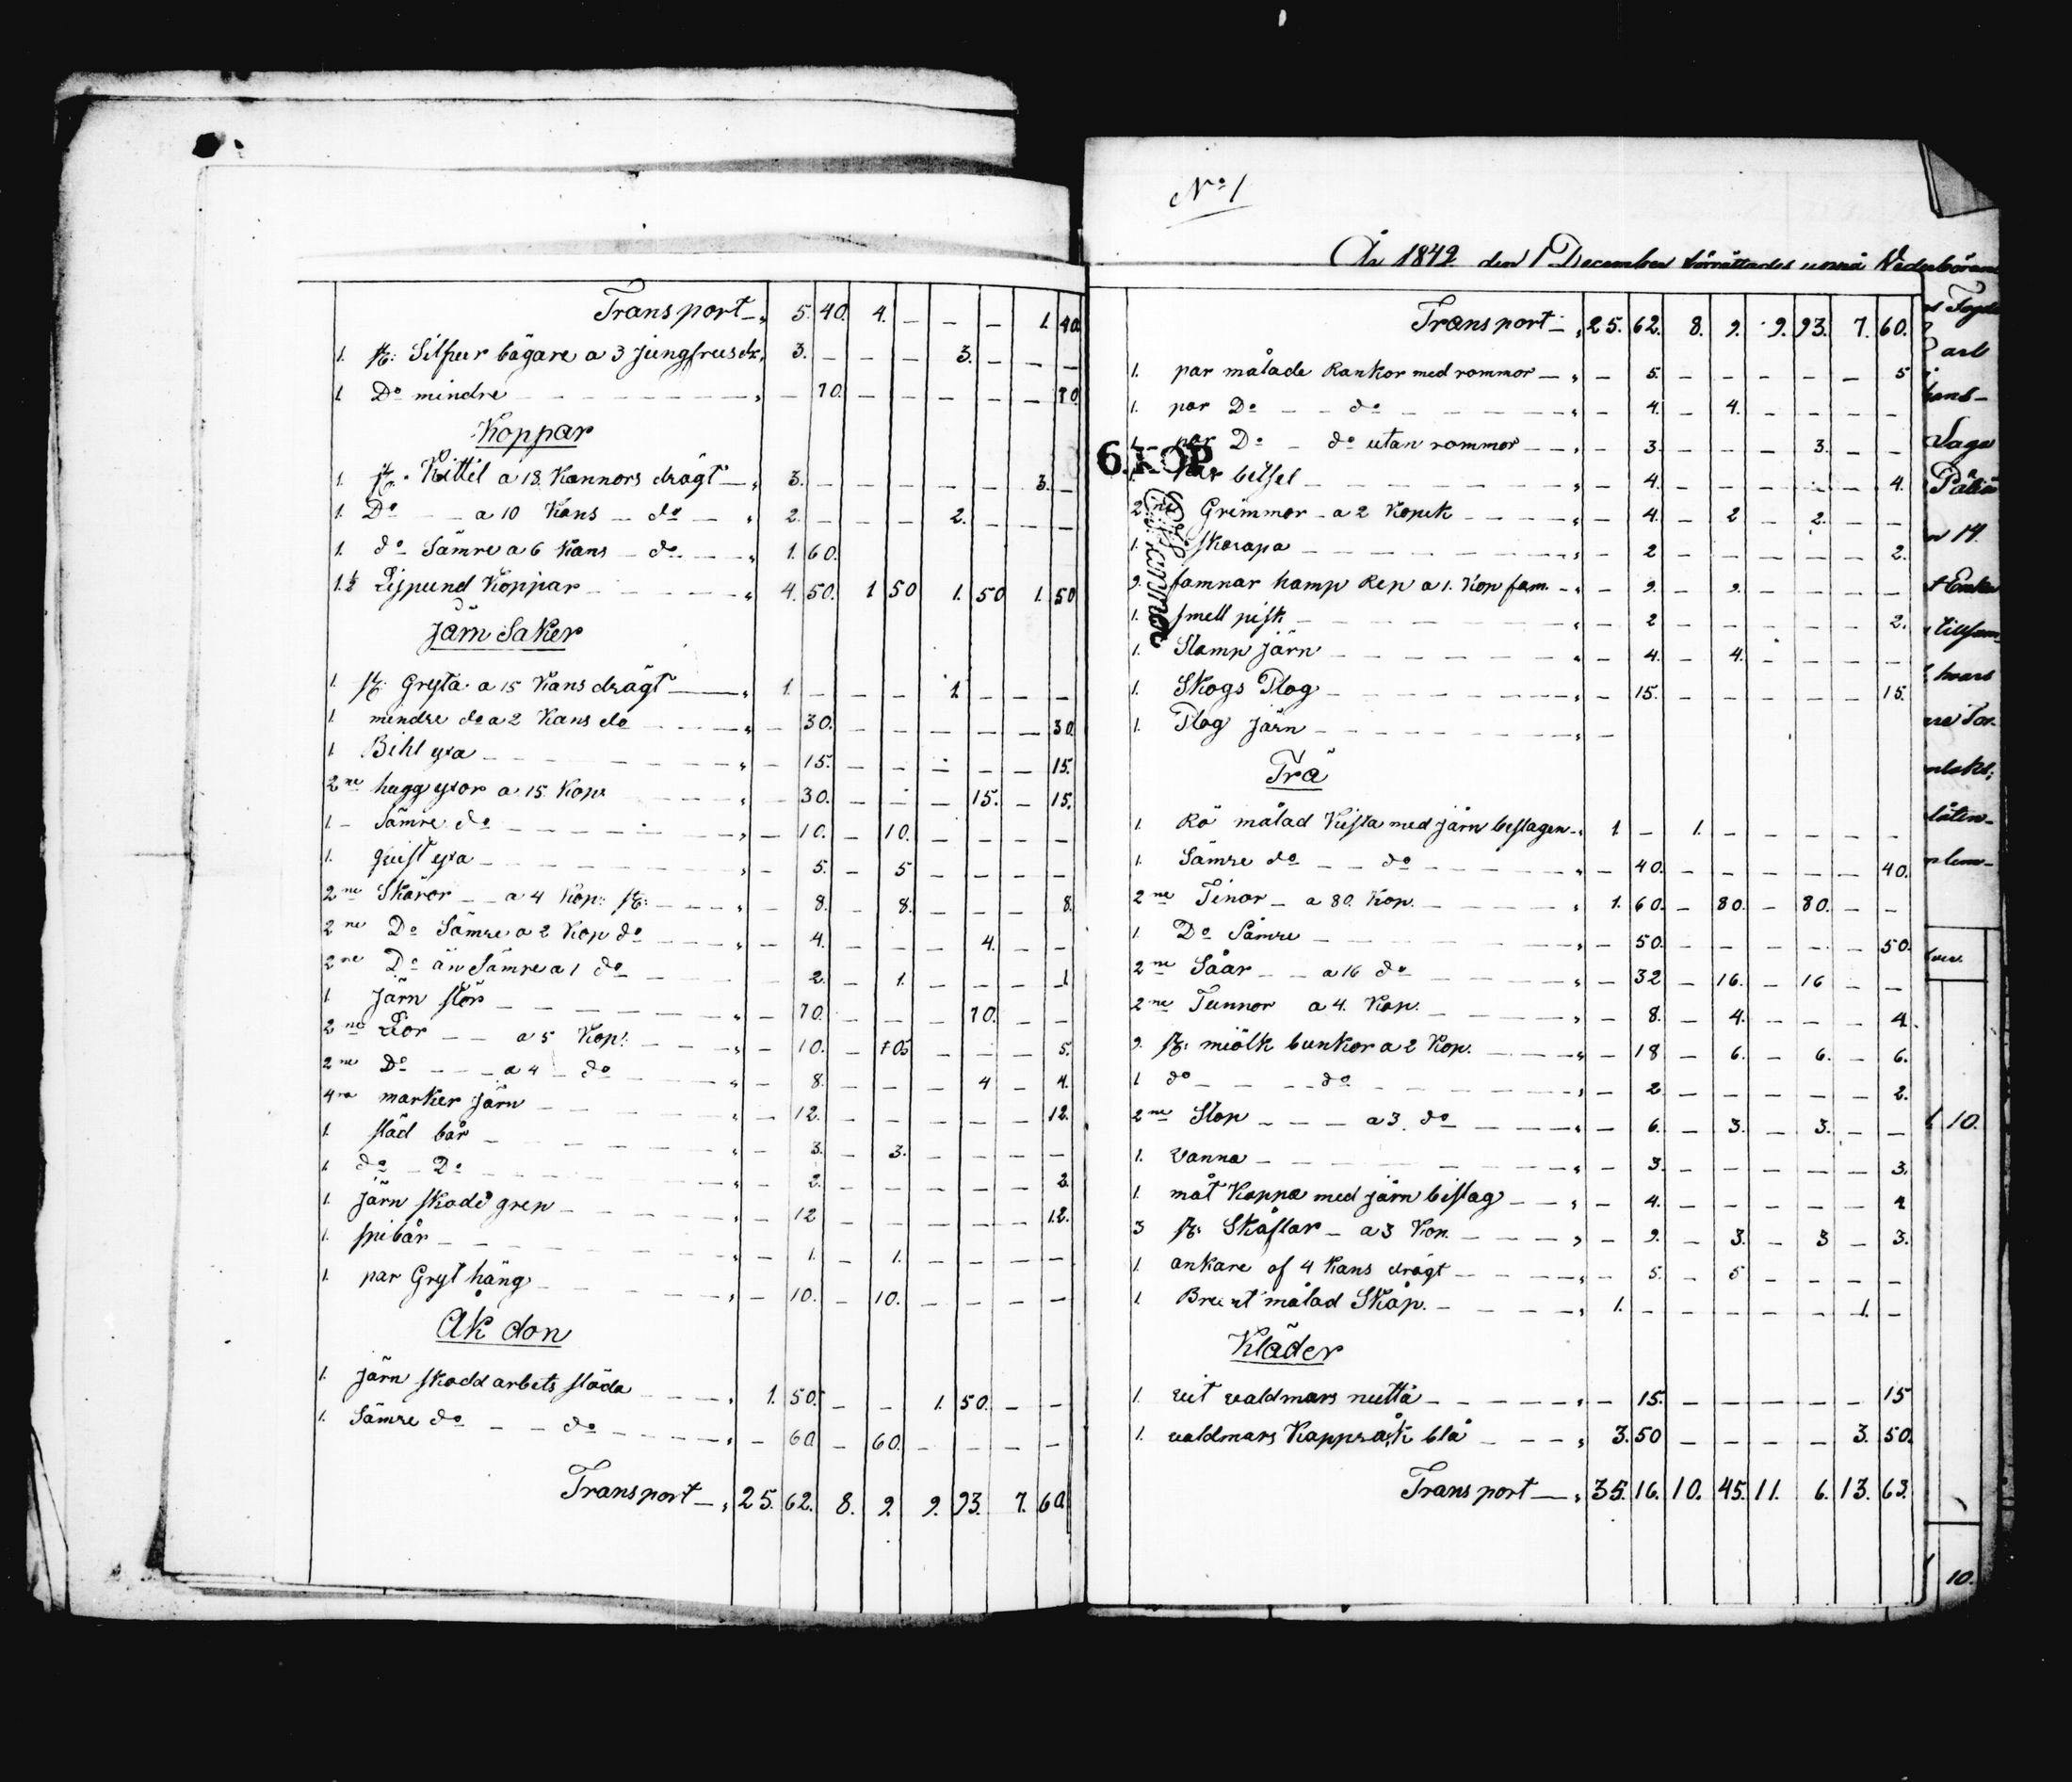 Transport 5. 40. 4. — — — 1. 40
1. st: Silfver bägare a 3 jungfrus dr. 3. — — — 3. — — —
1. Do mindre — 70. — — — — — 70.
Koppar
1. st. Kittel a 18 Kannors drägt 3. — — — — — 3. —
1. Do a 10 Kans do 2. — — — 2. — — —
1. do Sämre a 6 Kans do 1. 60.
1.½ Lispund Koppar 4. 50. 1 50 1. 50 1. 50
Järn Saker
1. st: Gryta a 15 Kans drägt 1. — — — 1. — — —
1. mindre do a 2 Kans do — 30. — — — — — 30.
1. Bihl yxa — 15. — — — — — 15.
2ne hugg yxor a 15 Kop — 30. — — — 15. — 15.
1. Sämre do — 10. — 10. — — — —
1. quist yxa — 5. — 5 — — — —
2ne Skäror a 4 Kop: st: — 8. — 8. — — — 8.
2ne Do Sämre a 2 Kop do — 4. — — — 4. — —
2ne Do än Sämre a 1 do — 2. — 1. — — — 1
1. Järn stör — 70. — — — 70. — —
2ne Lior a 5 Kop. — 10. — 05 — — — 5.
2ne Do a 4 do — 8. — — — 4 — 4.
4ra marker Järn — 12. — — — — — 12.
1. städ bår — 3. — 3. — — — —
1. do Do — 2. — — — — — 2.
1. Järn skode grep — 12 — — — — — 12.
1. spibår — 1. — 1. — — — —
1. par Gryt häng — 10. — 10. — — — —
Åk don
1. Järn skodd arbets släda 1. 50. — — 1. 50. — —
1. Sämre do do — 60 — 60. — — — —
Transport 25. 62. 8. 9. 9. 93. 7. 60.
No 1
År 1842 den 1 December förrättades uppå Vederböran
Transport 25. 62. 8. 9. 9. 93. 7. 60.
1. par målade Rankor med rommor — 5. — — — — — 5
1. par Do do — 4. — 4. — — — —
1. par Do do utan rommor — 3. — — — 3. — —
6.KOP
1. par betsel — 4. — — — — — 4.
2ne Grimmor a 2 Kopek — 4. — 2 — 2. — —
1. skrapa — 2 — — — — — 2.
9. famnar hamp Rep a 1. Kop fam. — 9. — 9. — — — —
1. smell pisk — 2 — — — — — 2.
1. Stamp järn — 4. — 4. — — — —
1. Skogs Plog — 15. — — — — — 15.
1. Plog Järn —
Trä
1. Rö målad Kista med järn beslagen 1. — 1. — — — — —
1. Sämre do do — 40. — — — — — 40.
2ne Tinor a 80. Kop. 1. 60. — 80. — 80. — —
1. Do Sämre — 50. — — — — — 50.
2ne Såar a 16 do — 32 — 16. — 16 — —
2ne Tunnor a 4. Kop. — 8. — 4. — — — 4.
9. st: miölk bunkor a 2 Kop. — 18 — 6. — 6. — 6.
1 do do — 2 — — — — — 2.
2ne Stop a 3. do — 6. — 3. — 3. — —
1. Vanna — 3. — — — — — 3.
1. måt Kappa med järn beslag — 4. — — — — — 4
3 st: Skåflar a 3 Kop. — 9. — 3. — 3 — 3.
1. ankare af 4 Kans drägt — 5. — 5 — — — —
1. målad Skåp. 1. — — — — — 1. —
Kläder
1. vit valdmars mutta — 15. — — — — — 15
1. valdmars Kappråk blå 3. 50 — — — — 3. 50.
Transport 35. 16. 10. 45. 11. 6. 13. 63.
Saga
n 14.
hvars
1. 10.
10.